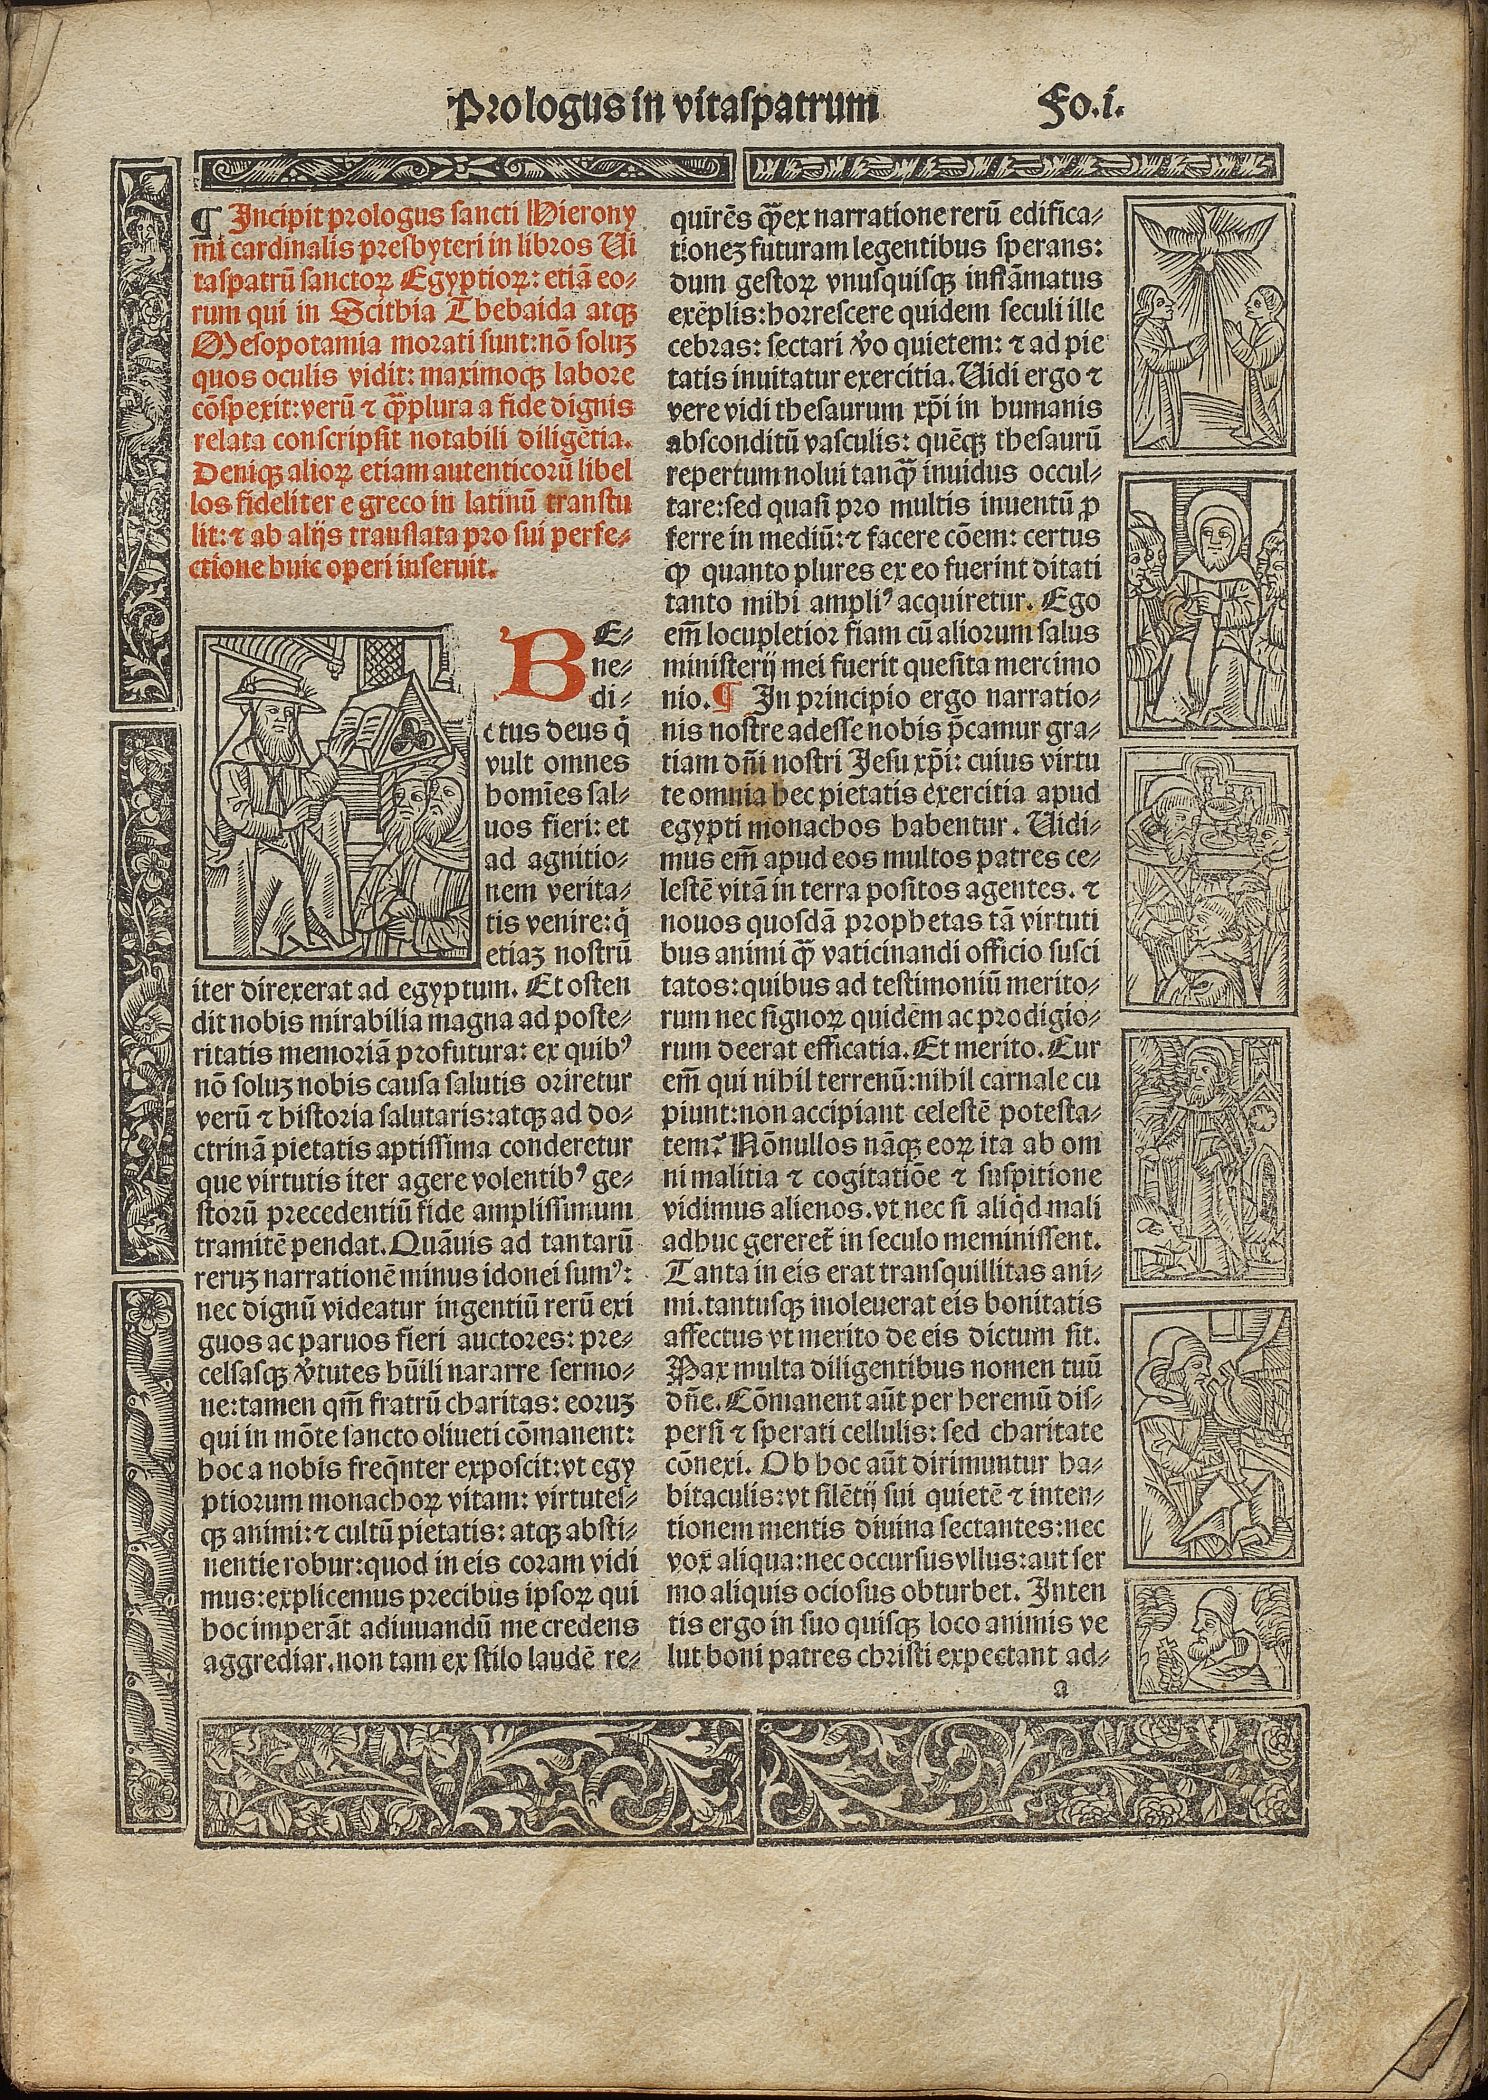 Prologus in vitaspatrum
Fo.i.
¶ Incipit prologus sancti Hierony
mi cardinalis presbyteri in libros Ui
taspatrũ sanctoꝝ Egyptioꝝ: etiã eo-
rum qui in Scithia Thebaida atqꝫ
Mesopotamia morati sunt: nõ soluꝫ
quos oculis vidit: maximoqꝫ labore
cõspexit: verũ ⁊ qꝫ̃plura a fide dignis
relata conscripsit notabili diligẽtia.
Deniqꝫ alioꝝ etiam autenticorũ libel
los fideliter e greco in latinũ transtu
lit: ⁊ ab alijs translata pro sui perfe-
ctione huic operi inseruit.
BE-
ne-
di-
ctus deus q̇
vult omnes
homĩes sal-
uos fieri: et
ad agnitio-
nem verita-
tis venire: q̇
etiaꝫ nostrũ
iter direxerat ad egyptum. Et osten
dit nobis mirabilia magna ad poste-
ritatis memoriã profutura: ex quibꝰ
nõ soluꝫ nobis causa salutis oriretur
verũ ⁊ historia salutaris: atqꝫ ad do-
ctrinã pietatis aptissima conderetur
que virtutis iter agere volentibꝰ ge-
storũ precedentiũ fide amplissimum
tramitẽ pendat. Quãuis ad tantarũ
reruꝫ narrationẽ minus idonei sumꝰ:
nec dignũ videatur ingentiũ rerũ exi
guos ac paruos fieri auctores: pre-
celsasqꝫ v̾tutes hũili nararre sermo-
ne: tamen qm̃ fratrũ charitas: eoruꝫ
qui in mõte sancto oliueti cõmanent:
hoc a nobis freq̃nter exposcit: vt egy
ptiorum monachoꝝ vitam: virtutes-
qꝫ animi: ⁊ cultũ pietatis: atqꝫ absti-
nentie robur: quod in eis coram vidi
mus: explicemus precibus ipsoꝝ qui
hoc imperãt adiuuandũ me credens
aggrediar. non tam ex stilo laudẽ re-
quirẽs qꝫ̃ ex narratione rerũ edifica-
tioneꝫ futuram legentibus sperans:
dum gestoꝝ vnusquisqꝫ inflãmatus
exẽplis: horrescere quidem seculi ille
cebras: sectari v̾o quietem: ⁊ ad pie
tatis inuitatur exercitia. Uidi ergo ⁊
vere vidi thesaurum xp̃i in humanis
absconditũ vasculis: quẽqꝫ thesaurũ
repertum nolui tanqꝫ̃ inuidus occul-
tare: sed quasi pro multis inuentũ ꝓ
ferre in mediũ: ⁊ facere cõem: certus
ꝙ quanto plures ex eo fuerint ditati
tanto mihi ampliꝰ acquiretur. Ego
em̃ locupletior fiam cũ aliorum salus
ministerij mei fuerit quesita mercimo
nio. ¶ In principio ergo narratio-
nis nostre adesse nobis p̃camur gra-
tiam dñi nostri Jesu xp̃i: cuius virtu
te omnia hec pietatis exercitia apud
egypti monachos habentur. Uidi-
mus em̃ apud eos multos patres ce-
lestẽ vitã in terra positos agentes. ⁊
nouos quosdã prophetas tã virtuti
bus animi qꝫ̃ vaticinandi officio susci
tatos: quibus ad testimoniũ merito-
rum nec signoꝝ quidem ac prodigio-
rum deerat efficatia. Et merito. Cur
em̃ qui nihil terrenũ: nihil carnale cu
piunt: non accipiant celestẽ potesta-
tem? Nõnullos nãqꝫ eoꝝ ita ab om
ni malitia ⁊ cogitatiõe ⁊ suspitione
vidimus alienos. vt nec si aliq̇d mali
adhuc gereret̃ in seculo meminissent.
Tanta in eis erat transquillitas ani-
mi. tantusqꝫ inoleuerat eis bonitatis
affectus vt merito de eis dictum sit.
Pax multa diligentibus nomen tuũ
dñe. Cõmanent aũt per heremũ dis-
persi ⁊ sperati cellulis: sed charitate
cõnexi. Ob hoc aũt dirimuntur ha-
bitaculis: vt silẽtij sui quietẽ ⁊ inten-
tionem mentis diuina sectantes: nec
vox aliqua: nec occursus vllus: aut ser
mo aliquis ociosus obturbet. Inten
tis ergo in suo quisqꝫ loco animis ve
lut boni patres christi expectant ad-
a